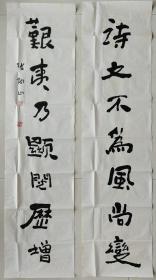 詩文不為風尚變
艱夷乃顯閱歷增